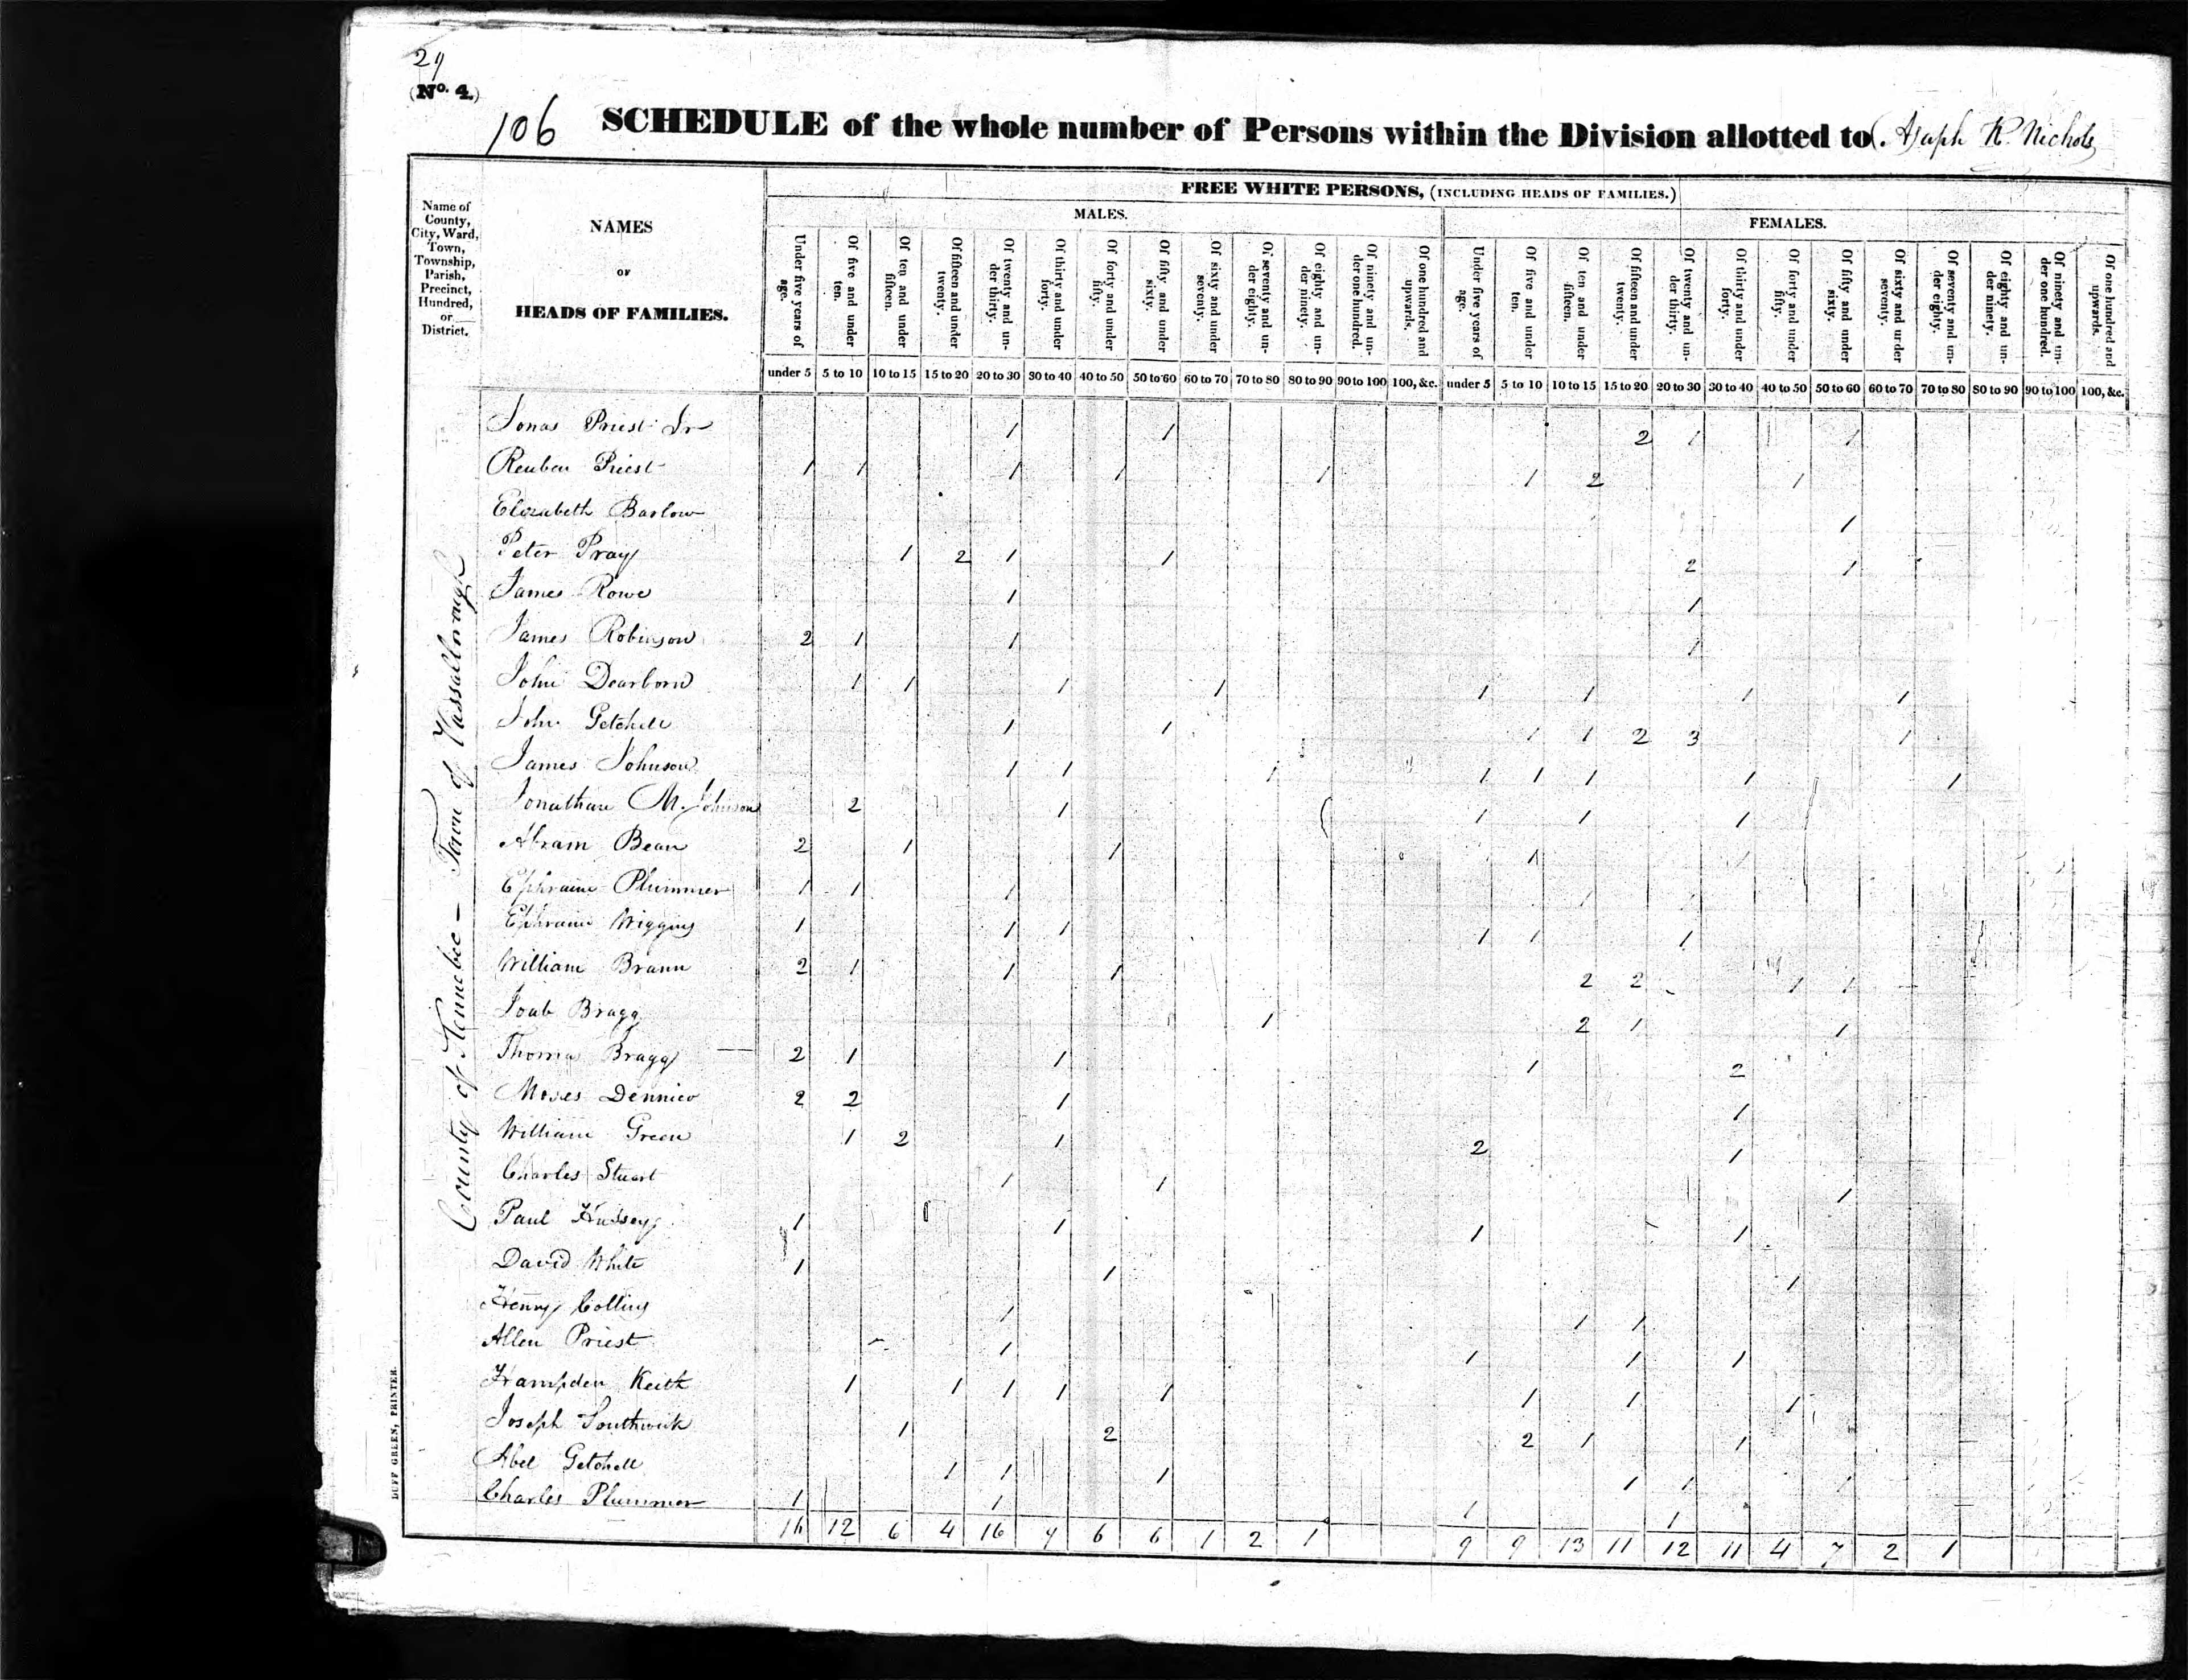 29
(No. 4.)
106 SCHEDULE of the whole number of Persons within the Division allotted to Asaph R. Nichols
Name of County, City, Ward, Town, Township, Parish, Precinct, Hundred, or District.
NAMES
OF
HEADS OF FAMILIES.
FREE WHITE PERSONS, (INCLUDING HEADS OF FAMILIES.)
MALES.
FEMALES.
Under five years of age.
Of five and under ten.
Of ten and under fifteen.
Of fifteen and under twenty.
Of twenty and under thirty.
Of thirty and under forty.
Of forty and under fifty.
Of fifty and under sixty.
Of sixty and under seventy.
Of seventy and under eighty.
Of eighty and under ninety.
Of ninety and under one hundred.
Of one hundred and upwards.
Under five years of age.
Of five and under ten.
Of ten and under fifteen.
Of fifteen and under twenty.
Of twenty and under thirty.
Of thirty and under forty.
Of forty and under fifty.
Of fifty and under sixty.
Of sixty and under seventy.
Of seventy and under eighty.
Of eighty and under ninety.
Of ninety and under one hundred.
Of one hundred and upwards.
under 5 5 to 10 10 to 15 15 to 20 20 to 30 30 to 40 40 to 50 50 to 60 60 to 70 70 to 80 80 to 90 90 to 100 100, &c. under 5 5 to 10 10 to 15 15 to 20 20 to 30 30 to 40 40 to 50 50 to 60 60 to 70 70 to 80 80 to 90 90 to 100 100, &c.
County of Kennebec - Town of Vassalborough
Jonas Priest Jr 1 1 2 1 1
Reuben Priest 1 1 1 1 1 1 2 1
Elizabeth Barlow 1
Peter Pray 1 2 1 1 2 1
James Rowe 1 1
James Robinson 2 1 1 1
John Dearborn 1 1 1 1 1 1 1 1
John Getchell 1 1 1 1 2 3 1
James Johnson 1 1 1 1 1 1 1 1
Jonathan M. Johnson 2 1 1 1 1
Abram Bean 2 1 1 1 1
Ephraim Plummer 1 1 1 1 1
Ephraim Wiggins 1 1 1 1 1 1
William Brann 2 1 1 1 2 2 1 1
Joab Bragg 1 2 1 1
Thomas Bragg 2 1 1 1 2
Moses Dennico 2 2 1 1
William Green 1 2 1 2 1
Charles Stuart 1 1 1
Paul Hussey 1 1 1 1
David White 1 1 1
Henry Collins 1 1 1
Allen Priest 1 1 1 1
Hampden Keith 1 1 1 1 1 1 1 1
Joseph Southwick 1 2 2 1 1
Abel Getchell 1 1 1 1 1 1
Charles Plummer 1 1 1 1
16 12 6 4 16 9 6 6 1 2 1 9 9 13 11 12 11 4 7 2 1
DUFF GREEN, PRINTER.